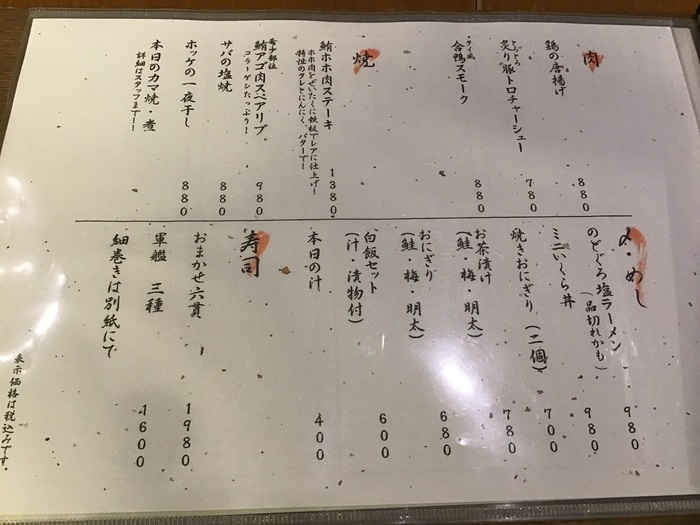 肉
鶏の唐揚げ
880
とろとろ
炙り豚トロチャーシュー
780
タイ風
合鴨スモーク
880
焼
鮪ホホ肉ステーキ
1380
ホホ肉をぜいたくに鉄板でレアに仕上げ!
特性のタレとにんにく、バターで!
希少部位
鮪アゴ肉スペアリブ
980
コラーゲンたっぷり!
サバの塩焼
880
ホッケの一夜干し
880
本日のカマ焼・煮
詳細はスタッフまで!!
〆・めし
のどぐろ塩ラーメン
(品切れかも)
980
ミニいくら丼
980
焼きおにぎり(二個)
700
お茶漬け
(鮭・梅・明太)
780
おにぎり
(鮭・梅・明太)
680
白飯セット
(汁・漬物付)
600
本日の汁
400
寿司
おまかせ六貫
1980
軍艦 三種
1600
細巻きは別紙にて
表示価格は税込みです。